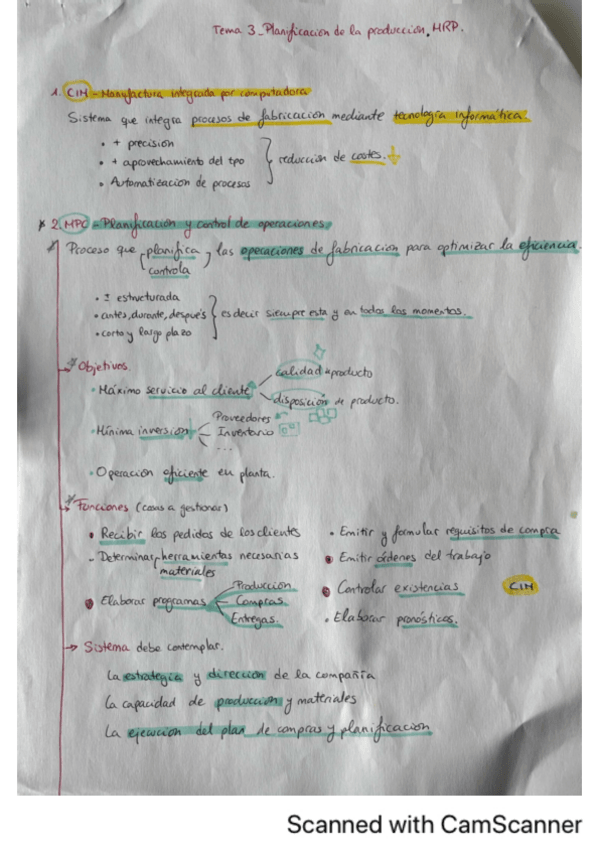 Tema 3_Planificación de la producción. MRP.
1. CIM - Manufactura integrada por computadora
Sistema que integra procesos de fabricación mediante tecnología informática.
• + precisión
• + aprovechamiento del tpo
• Automatización de procesos
reducción de costes.
* 2. MPC - Planificación y control de operaciones
Proceso que planifica
controla
las operaciones de fabricación para optimizar la eficiencia.
estructurada
• antes, durante, después
• corto y largo plazo
es decir siempre esta y en todos los momentos.
Objetivos.
• Máximo servicio al cliente
calidad producto
disposición de producto.
• Mínima inversión
Proveedores
Inventario
...
• Operación eficiente en planta.
Funciones (cosas a gestionar)
• Recibir los pedidos de los clientes
- Determinar herramientas necesarias
materiales
• Elaborar programas
Producción
Compras.
Entregas.
• Emitir y formular requisitos de compra
• Emitir órdenes del trabajo
• Controlar existencias
CIM
• Elaborar pronósticos.
→ Sistema debe contemplar.
La estrategia y dirección de la compañía
La capacidad de producción y materiales
La ejecución del plan de compras y planificación
Scanned with CamScanner